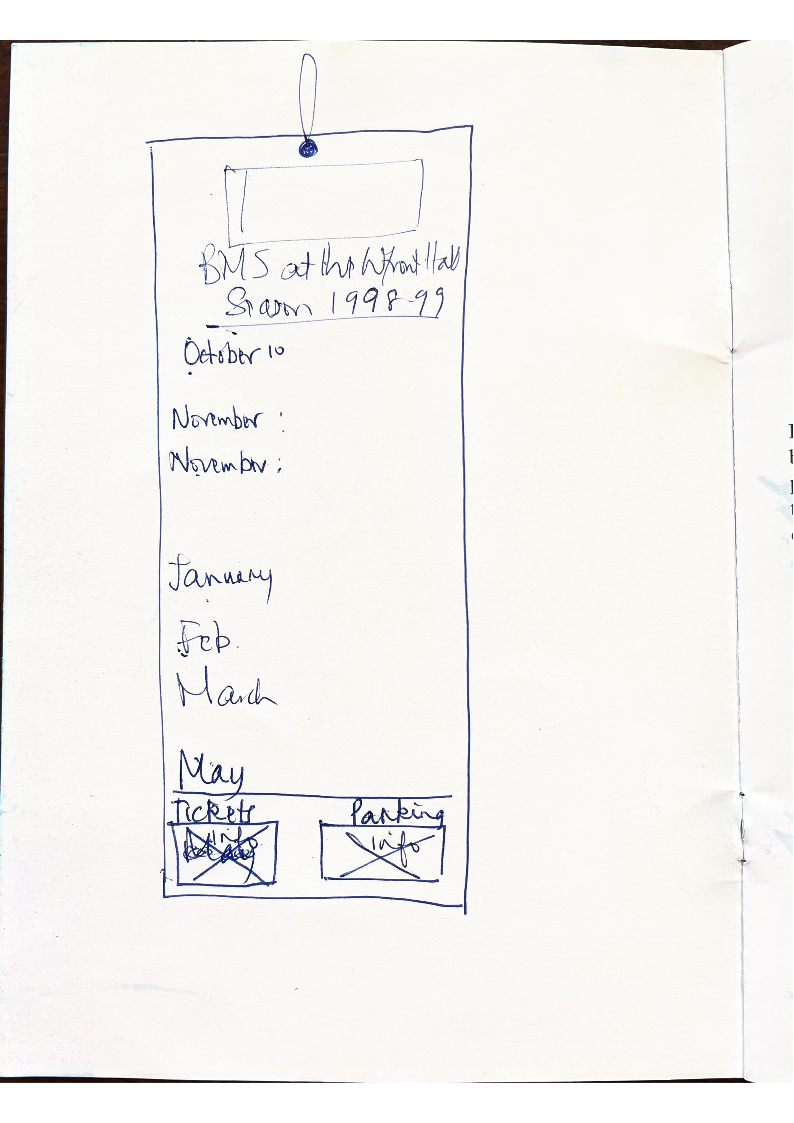 BMS at the W/Front Hall
Season 1998-99
October 10
November :
November :
January
Feb.
March
May
Tickets Parking
info info